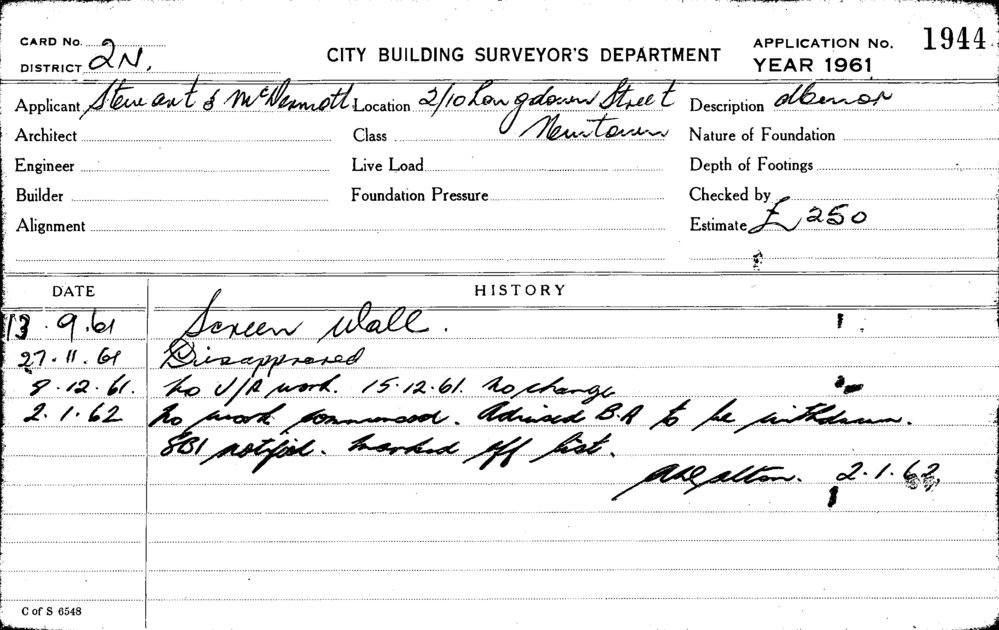 CARD No. 2N.
DISTRICT
CITY BUILDING SURVEYOR'S DEPARTMENT
APPLICATION No. 1944
YEAR 1961
Applicant Stewart & McDermott Location 2/10 Longdown Street Description
Architect Class Newtown Nature of Foundation
Engineer Live Load Depth of Footings
Builder Foundation Pressure Checked by
Alignment Estimate £ 250
DATE HISTORY
13.9.61 Screen Wall.
27.11.61 Disapproved
8.12.61. No U/A work. 15.12.61. No change
2.1.62 No work commenced. Advised B.A to be withdrawn.
SBI notified. Marked off list.
2.1.62
C of S 6548